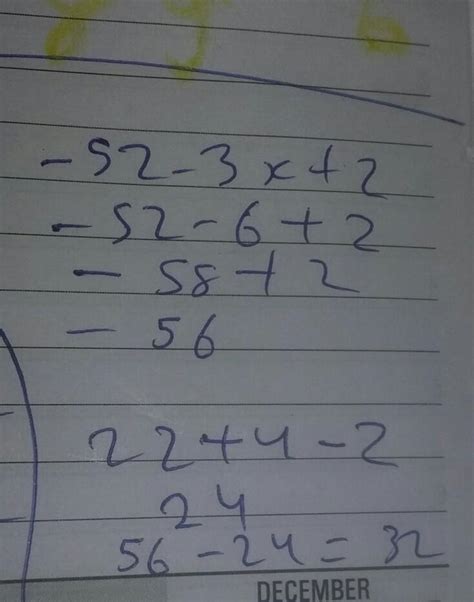 -52-3x+2
-52-6+2
-58+2
-56
22+4-2
24
56-24=32
DECEMBER